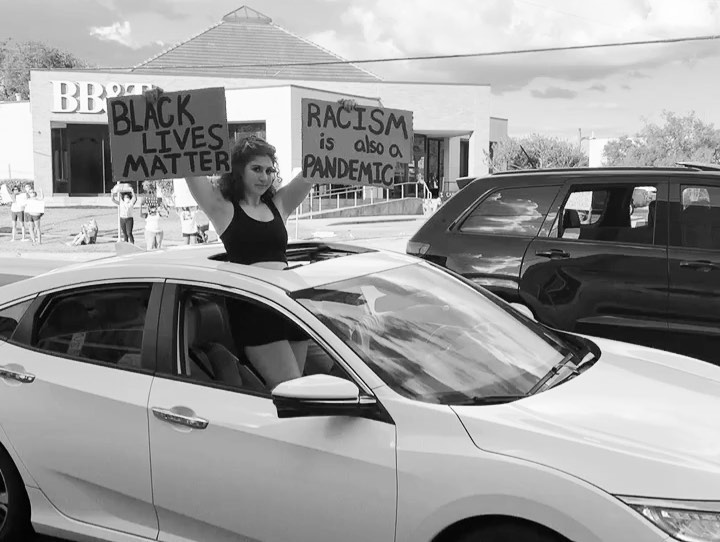 BB&T
BLACK
LIVES
MATTER
RACISM
is also a
PANDEMIC